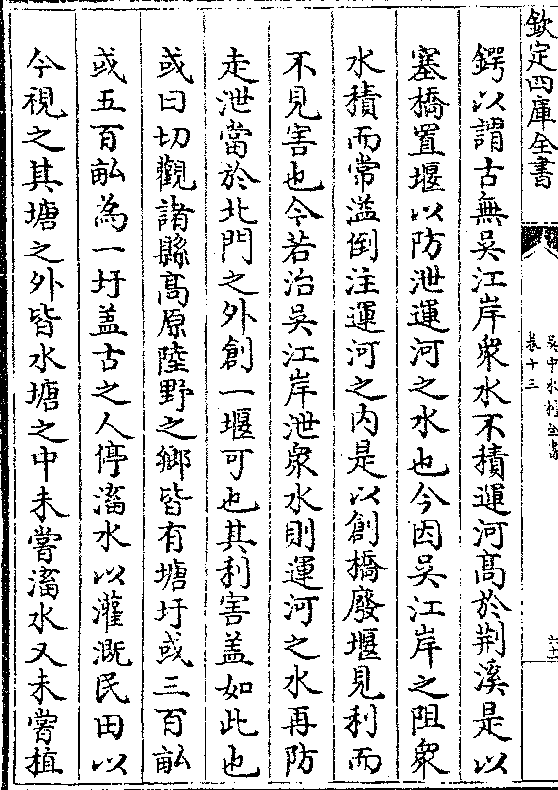 欽定四庫全書
吳中水利全書
卷十三
鍔以謂古無吳江岸衆水不積運河髙於荆溪是以
塞橋置堰以防泄運河之水也今因吳江岸之阻衆
水積而常溢倒注運河之内是以創橋廢堰見利而
不見害也今若治吳江岸泄衆水則運河之水再防
走泄當於北門之外創一堰可也其利害盖如此也
或曰切觀諸縣髙原陸野之鄉皆有塘圩或三百畝
或五百畝為一圩盖古之人停滀水以灌溉民田以
今視之其塘之外皆水塘之中未嘗滀水又未嘗植